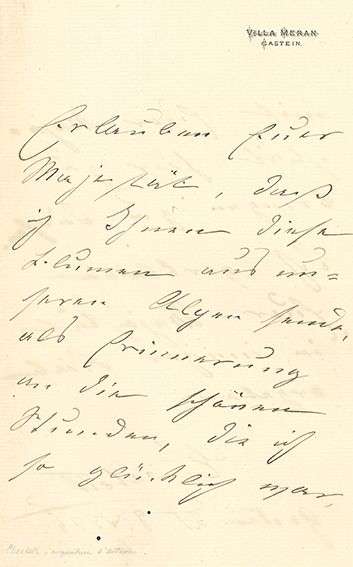 VILLA MERAN
GASTEIN.
Erlauben Euer
Majestät, daß
ich Ihnen diese
Blumen aus un=
seren Alpen sende,
als Erinnerung
an die schönen
Stunden, die ich
so glücklich war,